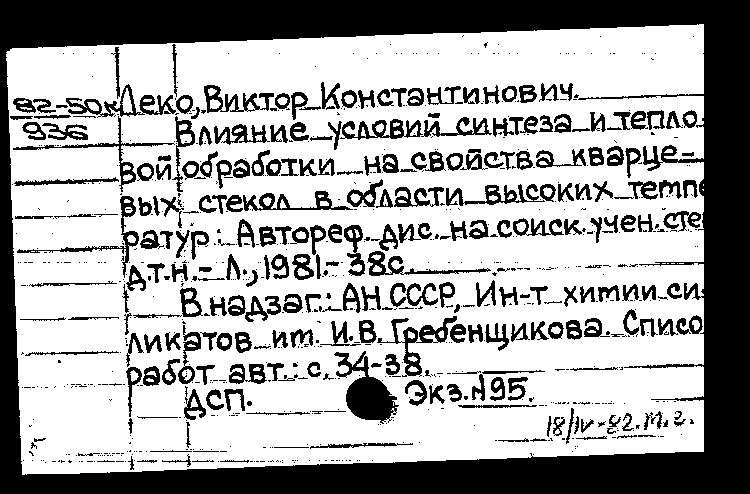 82-50к Леко, Виктор Константинович.
936 Влияние условий синтеза и тепло
вой обработки на свойства кварце-
вых стекол в области высоких темпе
ратур: Автореф. дис. на соиск. учен. сте
д.т.н. - Л., 1981. - 38с.
В надзаг.: АН СССР, Ин-т химии си
ликатов им. И.В. Гребенщикова. Списо
работ авт.: с. 34-38.
ДСП. Экз. №95.
18/IV-82. М.г.